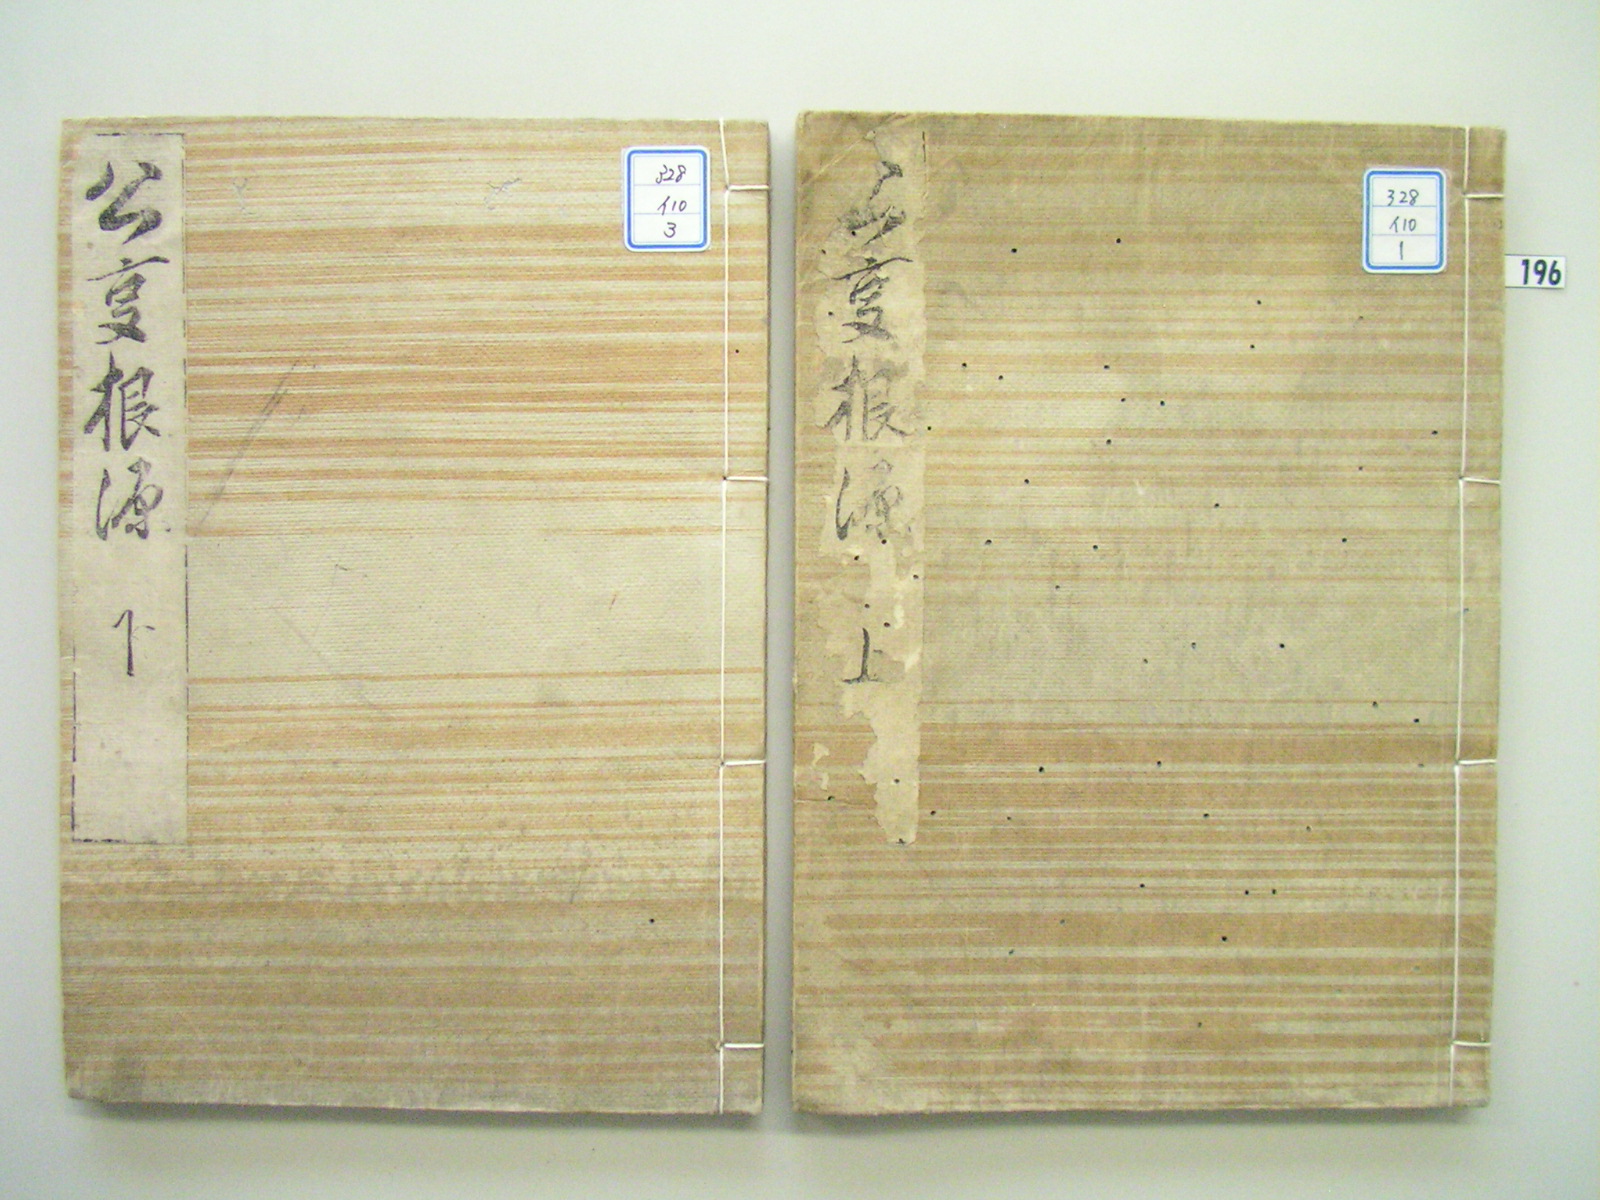 公事根源 下
328
イ10
3
公事根源 上
328
イ10
1
196